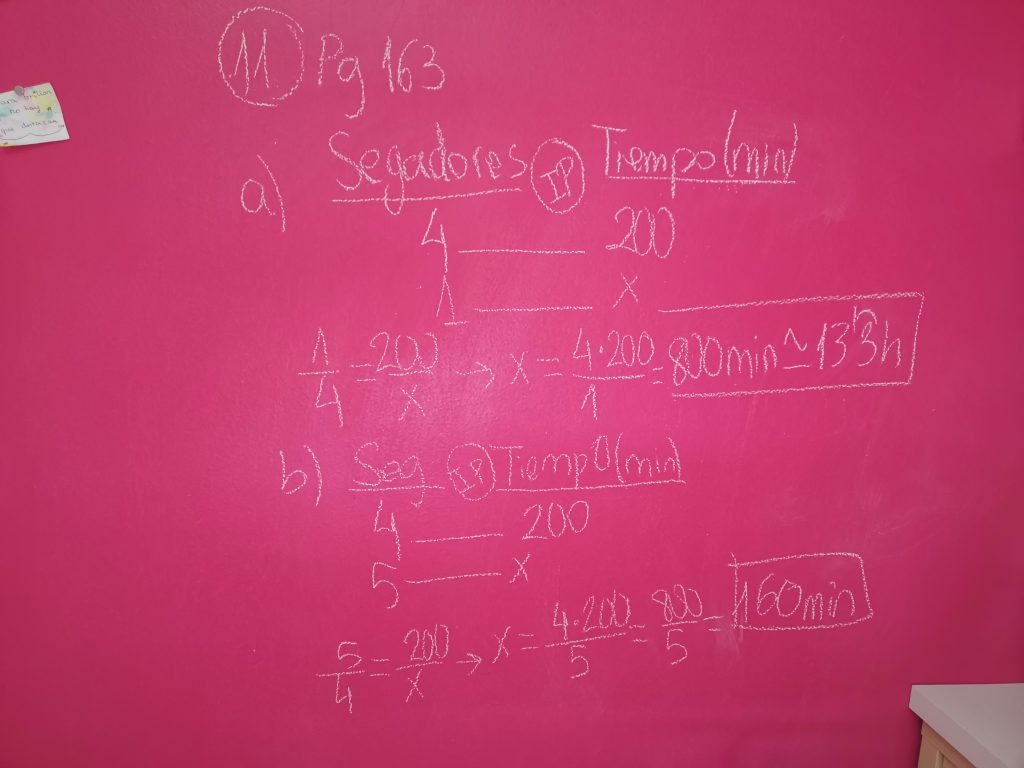 11 Pg 163
a) Segadores IP Tiempo (min)
4 200
1 x
1/4 = 200/x → x = 4·200/1 = 800min ≃ 13'3h
b) Seg IP Tiempo (min)
4 200
5 x
5/4 = 200/x → x = 4·200/5 = 800/5 = 160min
no hay